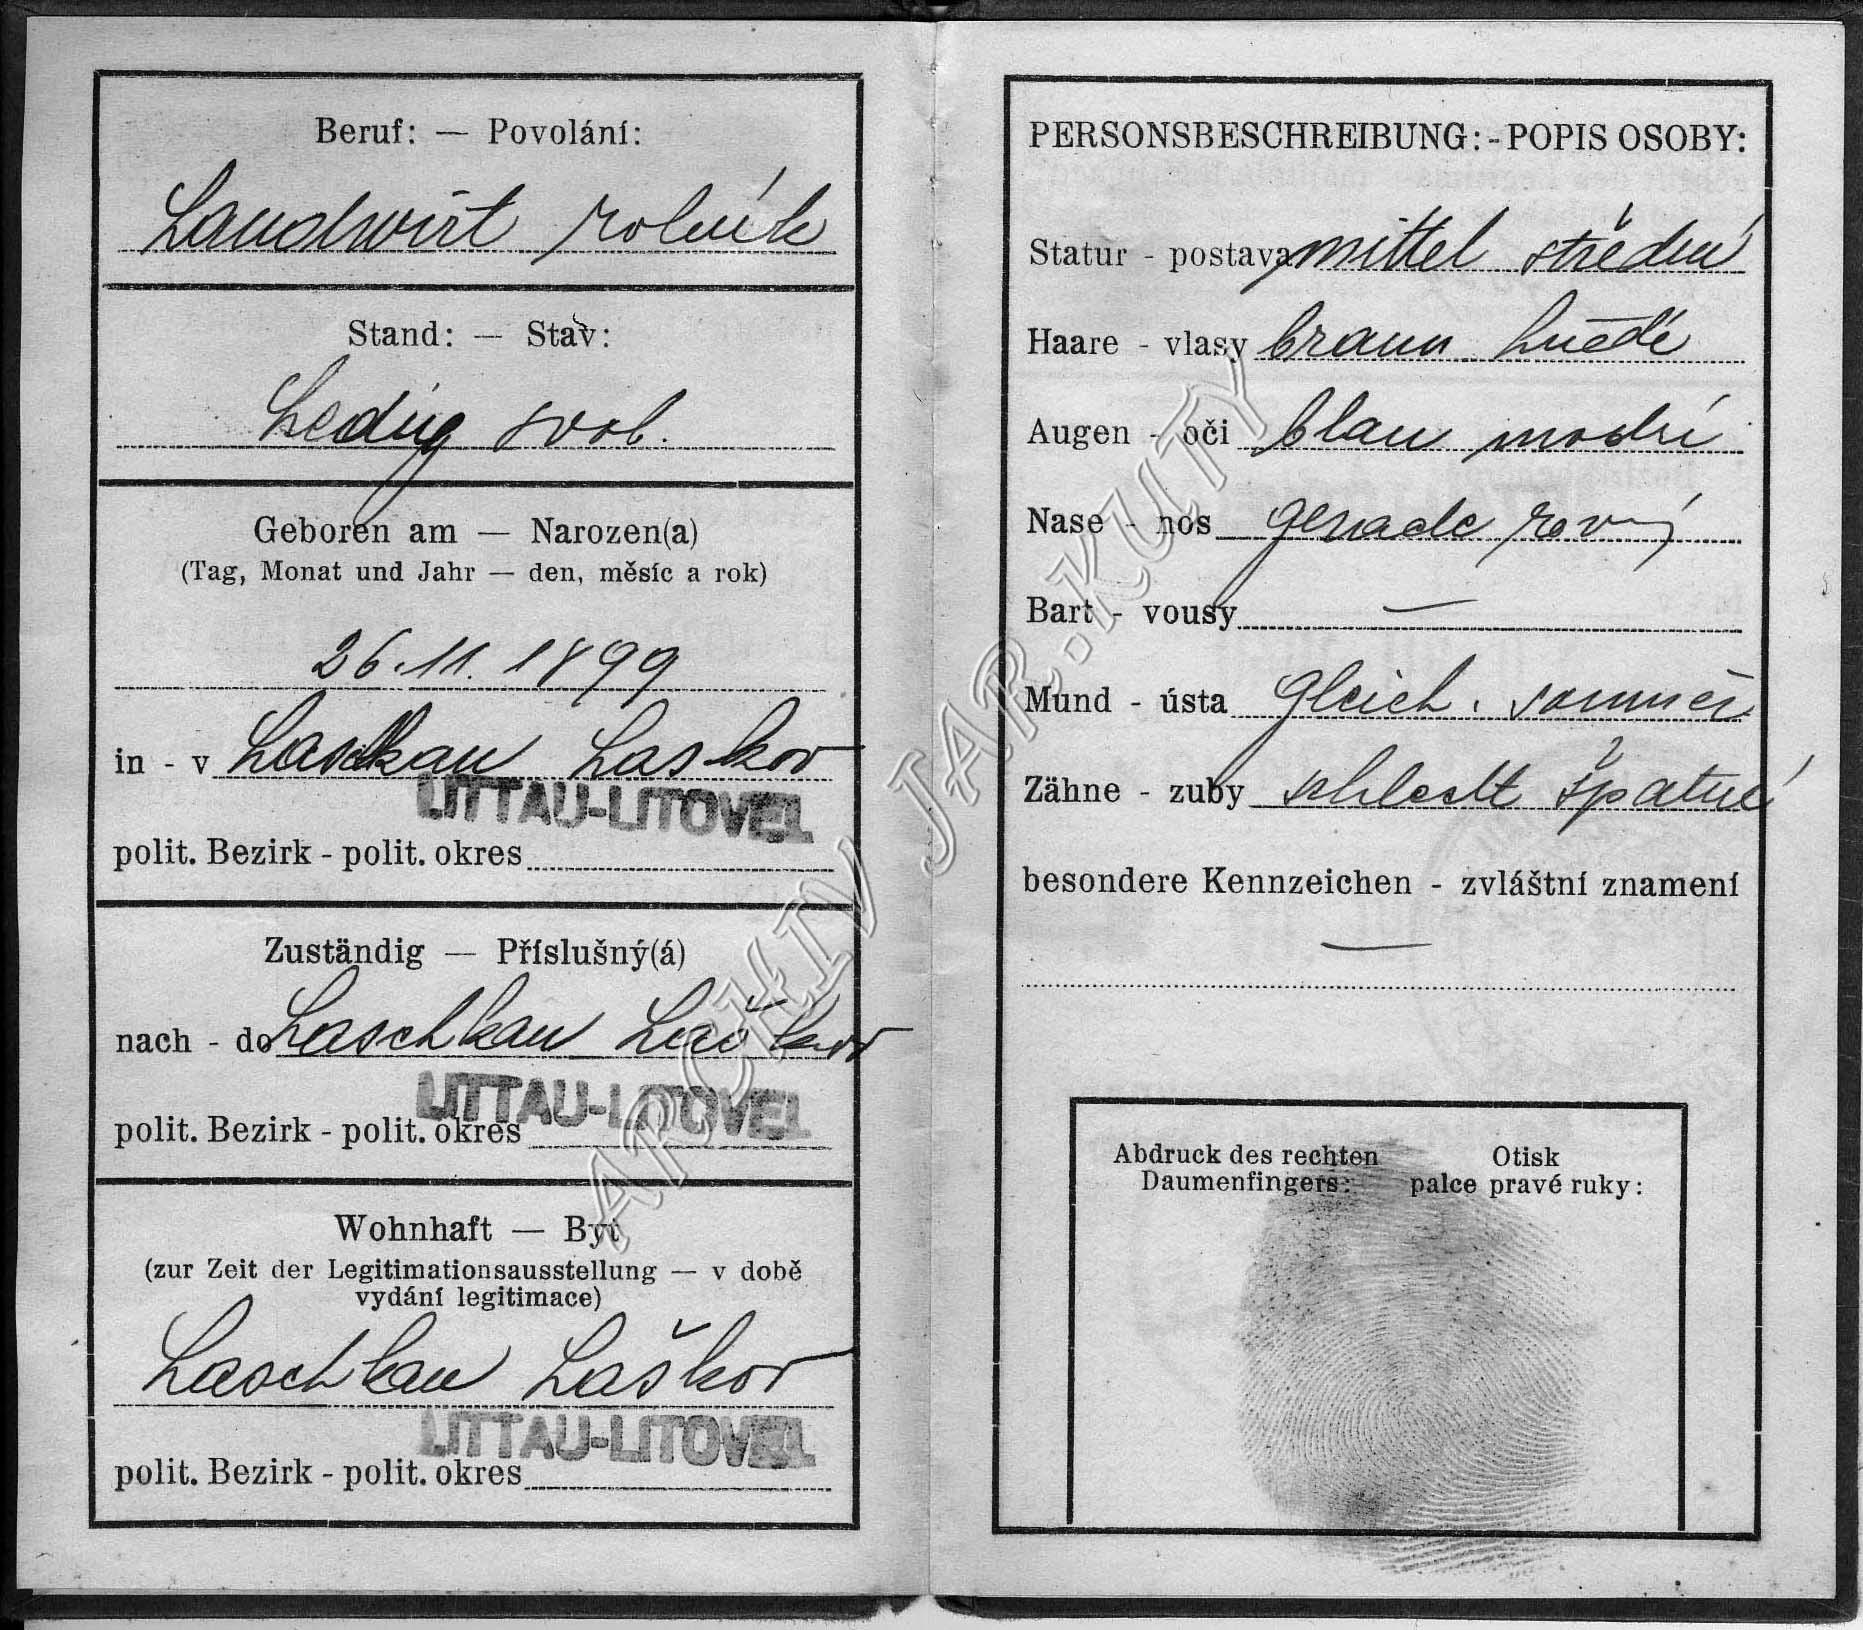 Beruf: — Povolání:
Landwirt rolník
Stand: — Stav:
Ledig svob.
Geboren am — Narozen(a)
(Tag, Monat und Jahr — den, měsíc a rok)
26. 11. 1899
in - v Laschkau Laskov
LITTAU-LITOVEL
polit. Bezirk - polit. okres
Zuständig — Příslušný(á)
nach - do Laschkau Laškov
LITTAU-LITOVEL
polit. Bezirk - polit. okres
Wohnhaft — Byt
(zur Zeit der Legitimationsausstellung — v době
vydání legitimace)
Laschkau Laškov
LITTAU-LITOVEL
polit. Bezirk - polit. okres
PERSONSBESCHREIBUNG: - POPIS OSOBY:
Statur - postava mittel střední
Haare - vlasy braun hnědé
Augen - oči blau modrí
Nase - nos gerade rovný
Bart - vousy —
Mund - ústa gleich. souměr.
Zähne - zuby schlecht špatné
besondere Kennzeichen - zvláštní znamení
—
Abdruck des rechten
Daumenfingers:
Otisk
palce pravé ruky:
ARCHIV JAR.KUTY